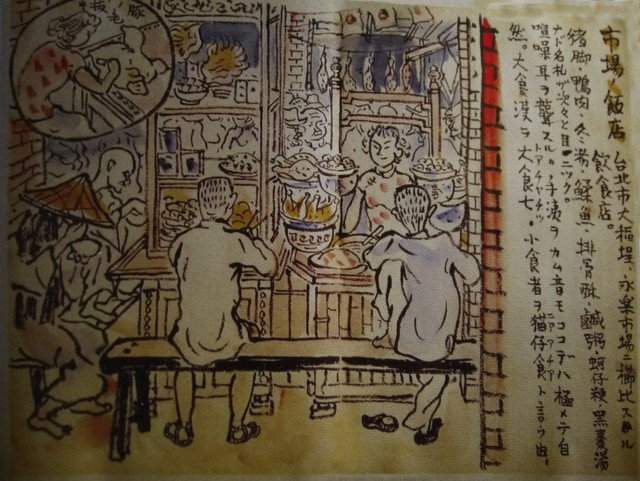 市場ノ飯店
台北市大稲埕、永楽市場ニ櫛比スル
飲食店。
猪脚、鴨肉、冬粉、魚、排骨酥、鹹粥、蚵仔、黒棗湯
ナド名札ガ次々と目ニツク。
喧噪耳ヲ聾スル。手洟ヲカム音モココデハ極メテ自
然。大食漢ヲ大食七、小食者ヲ猫仔食ト言ウ由。
豚ノ
毛抜